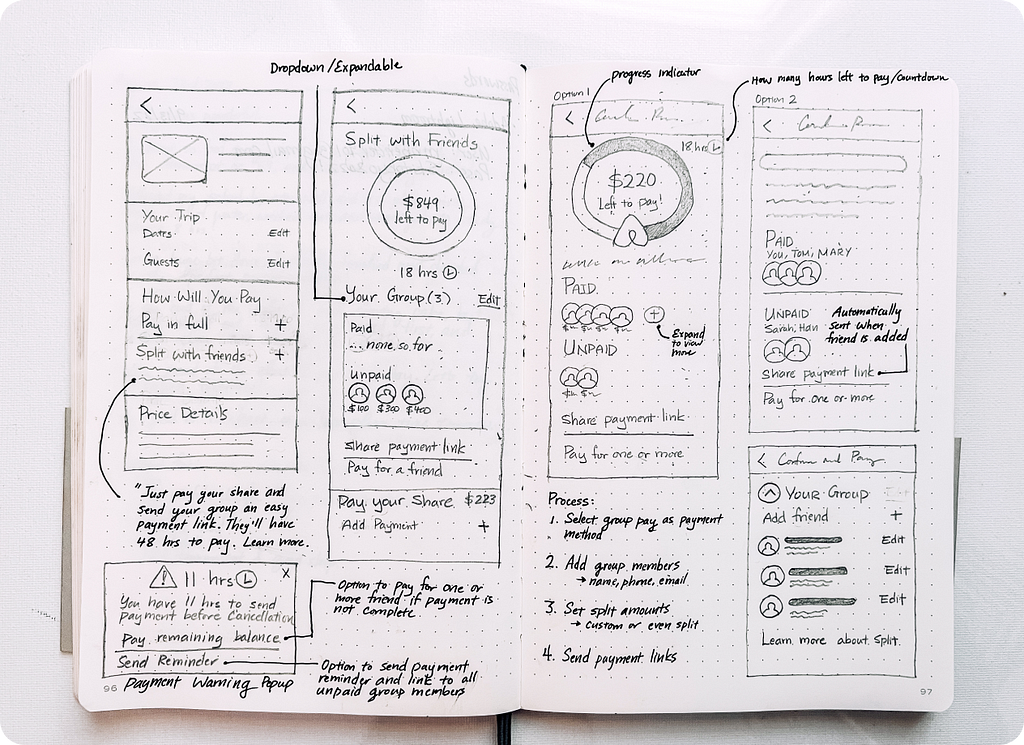 Dropdown/Expandable
<
Your Trip
Dates Edit
Guests Edit
How Will You Pay
Pay in full +
Split with friends +
Price Details
"Just pay your share and
send your group an easy
payment link. They'll have
48 hrs to pay. Learn more.
11 hrs X
You have 11 hrs to send
payment before cancellation
Pay remaining balance
Send Reminder
Payment Warning Popup
96
<
Split with Friends
$849
left to pay
18 hrs
Your Group (3) Edit
Paid
... none, so far
Unpaid
$100 $300 $400
Share payment link
Pay for a friend
Pay your Share $223
Add Payment +
Option to pay for one or
more friend if payment is
not complete
Option to send payment
reminder and link to all
unpaid group members
Progress indicator
Option 1
<
18 hrs
$220
Left to pay!
PAID
+
Expand
to view
more
UNPAID
Share payment link
Pay for one or more
Process:
1. Select group pay as payment
method
2. Add group members
→ name, phone, email
3. Set split amounts
→ custom or even split
4. Send payment links
How many hours left to pay/countdown
Option 2
<
PAID
You, Tom, MARY
UNPAID
Sarah, Han
Automatically
sent when
friend is added
Share payment link
Pay for one or more
< Confirm and Pay
Your Group
Add friend +
Edit
Edit
Edit
Learn more about split.
97